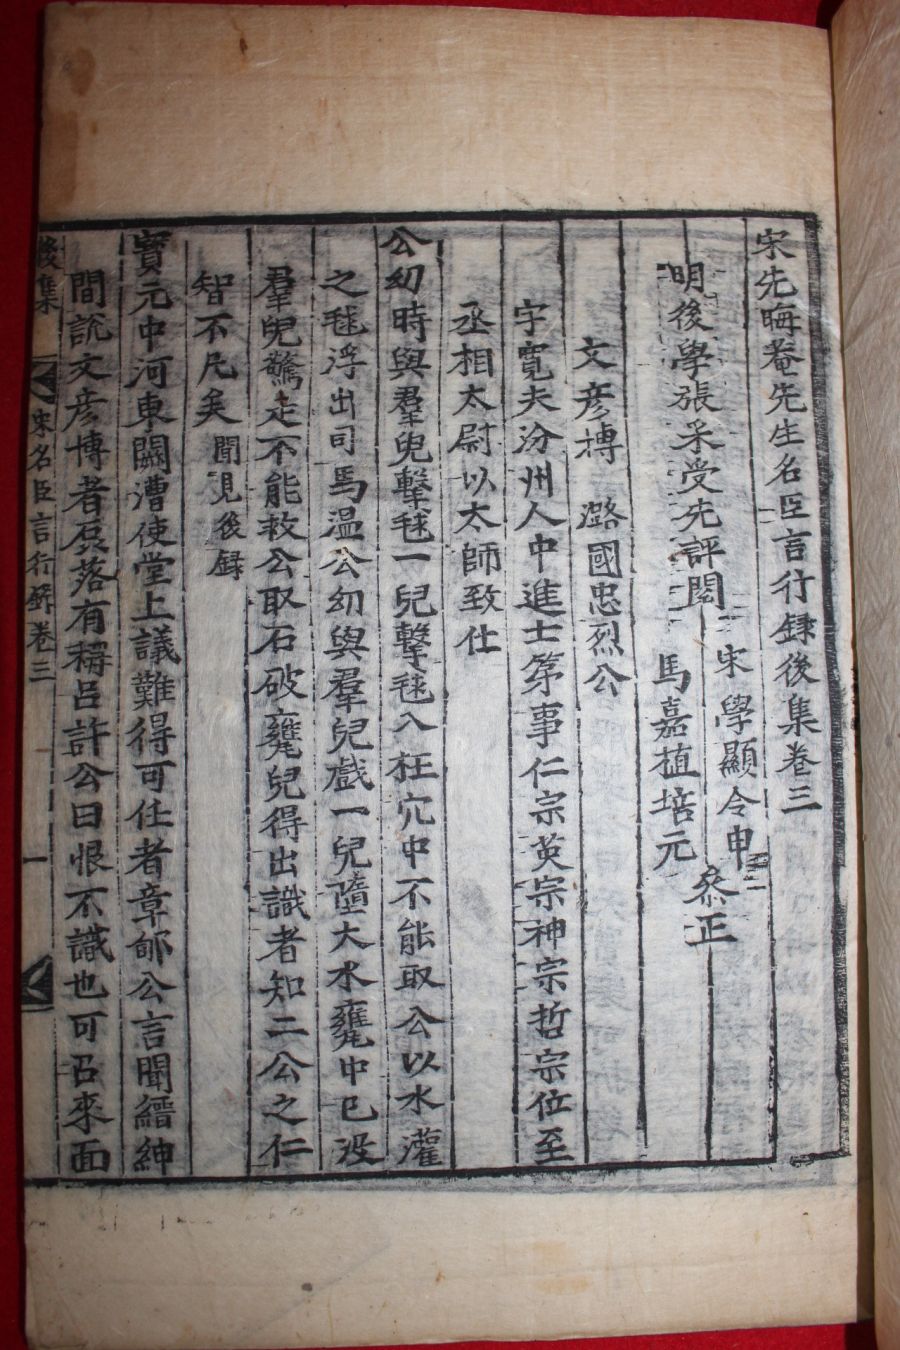 宋朱晦菴先生名臣言行錄後集卷三
明後學張采受先評閱
宋學顯令申
馬嘉植培元
叅正
文彥博 潞國忠烈公
字寬夫汾州人中進士第事仁宗英宗神宗哲宗位至
丞相太尉以太師致仕
公幼時與羣兒擊毬一兒擊毬入柱穴中不能取公以水灌
之毬浮出司馬溫公幼與羣兒戲一兒墮大水甕中已沒
羣兒驚走不能救公取石破甕兒得出識者知二公之仁
智不凡矣 聞見後錄
寶元中河東闕漕使堂上議難得可任者章郇公言聞縉紳
間說文彥博者磊落有稱呂許公曰恨不識也可召來面
後集 宋名臣言行錄卷三 一